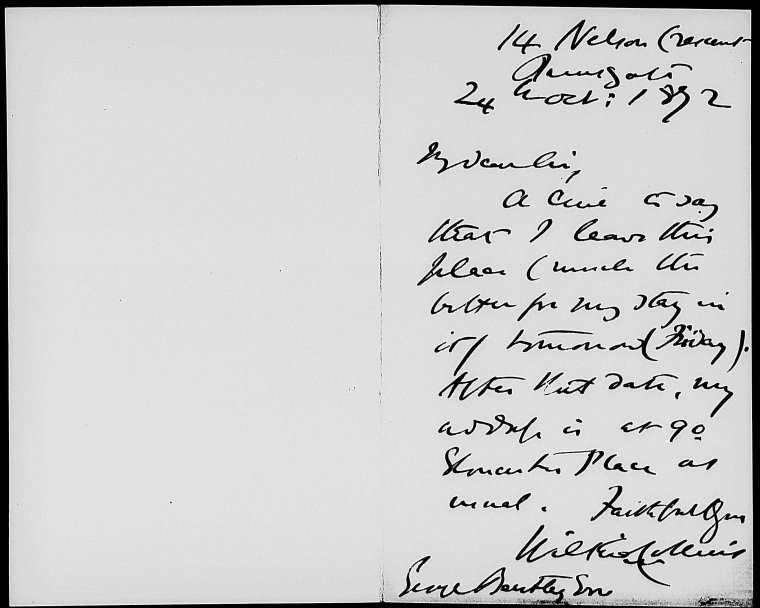 14 Nelson Crescent
Ramsgate
24th Oct: 1872
My dear Sir,
A line to say
that I leave this
place (much the
better for my stay in
it) tomorrow (Friday).
After that date, my
address is at 90
Gloucester Place as
usual. Faithfully yrs
Wilkie Collins
George Bentley Esq